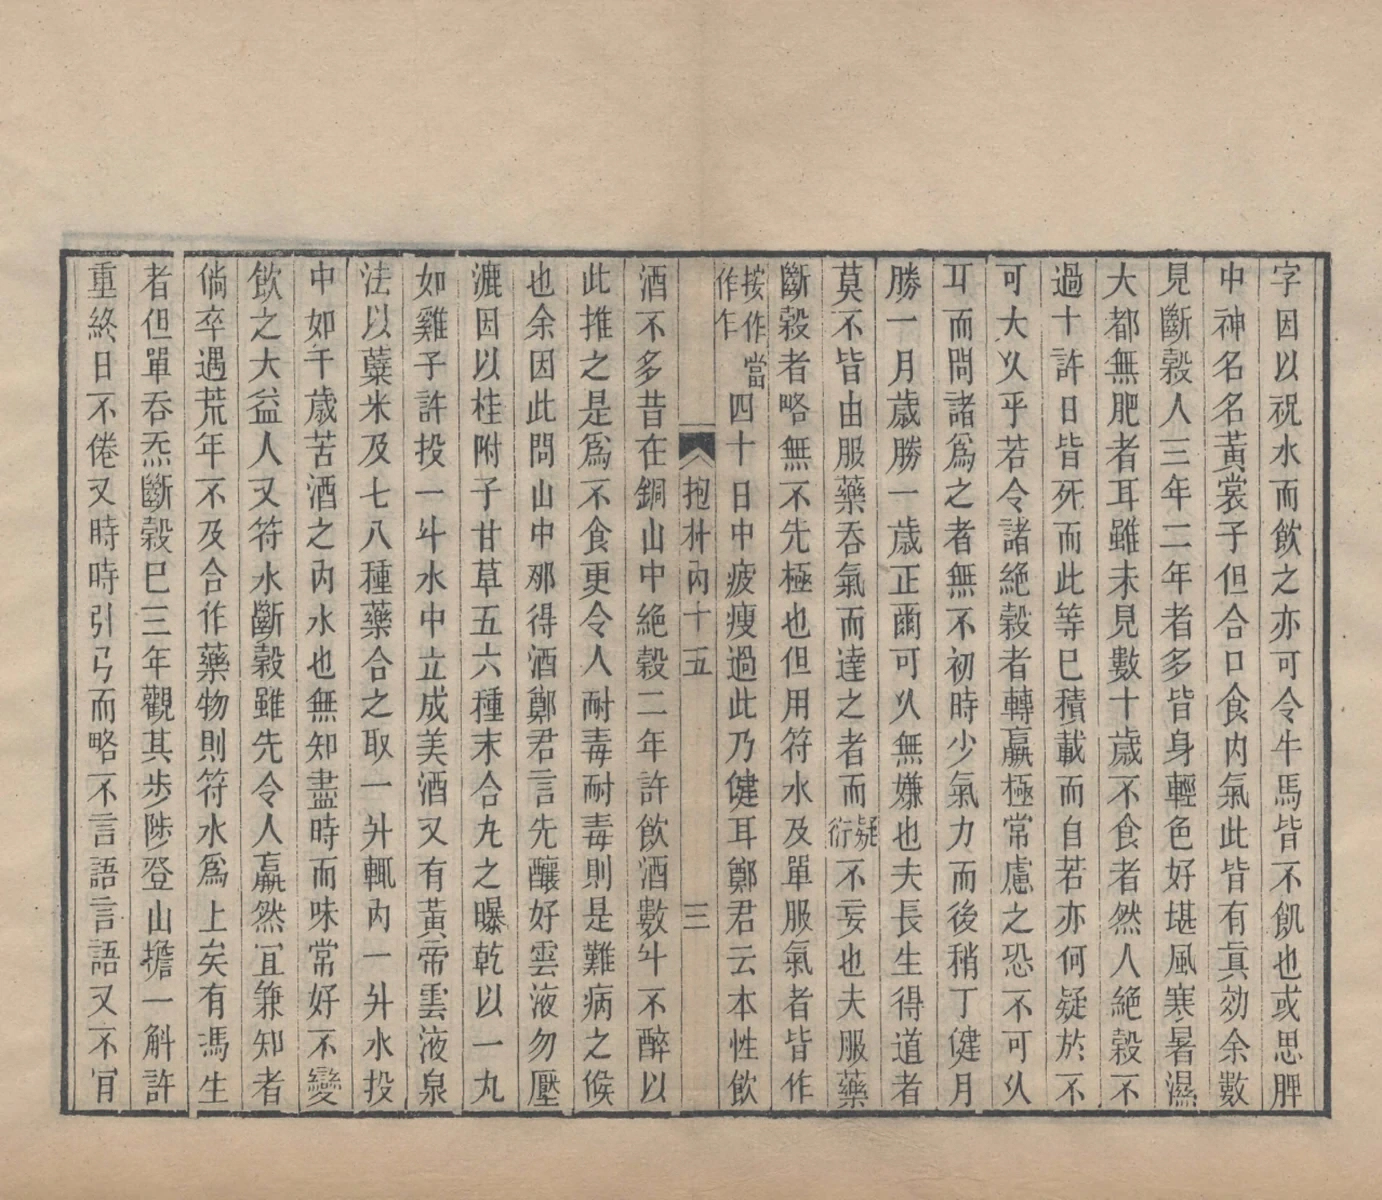 字因以祝水而飲之亦可令牛馬皆不飢也或思脾
中神名名黃裳子但合口食内氣此皆有眞効余數
見斷穀人三年二年者多皆身輕色好堪風寒暑濕
大都無肥者耳雖未見數十歲不食者然人絶穀不
過十許日皆死而此等巳積載而自若亦何疑於不
可大乆乎若令諸絶穀者轉羸極常慮之恐不可乆
耳而問諸爲之者無不初時少氣力而後稍丁健月
勝一月歲勝一歲正爾可乆無嫌也夫長生得道者
莫不皆由服藥吞氣而達之者而疑衍不妄也夫服藥
斷穀者略無不先極也但用符水及單服氣者皆作
按作當作乍四十日中疲瘦過此乃健耳鄭君云本性飲
抱朴内十五 三
酒不多昔在銅山中絶穀二年許飲酒數斗不醉以
此推之是爲不食更令人耐毒耐毒則是難病之候
也余因此問山中那得酒鄭君言先釀好雲液勿壓
漉因以桂附子甘草五六種末合丸之曝乾以一丸
如雞子許投一斗水中立成美酒又有黃帝雲液泉
法以蘖米及七八種藥合之取一升輒内一升水投
中如千歲苦酒之内水也無知盡時而味常好不變
飲之大益人又符水斷穀雖先令人羸然宜兼知者
倘卒遇荒年不及合作藥物則符水爲上矣有馮生
者但單吞炁斷穀巳三年觀其步陟登山擔一斛許
重終日不倦又時時引弓而略不言語言語又不肯